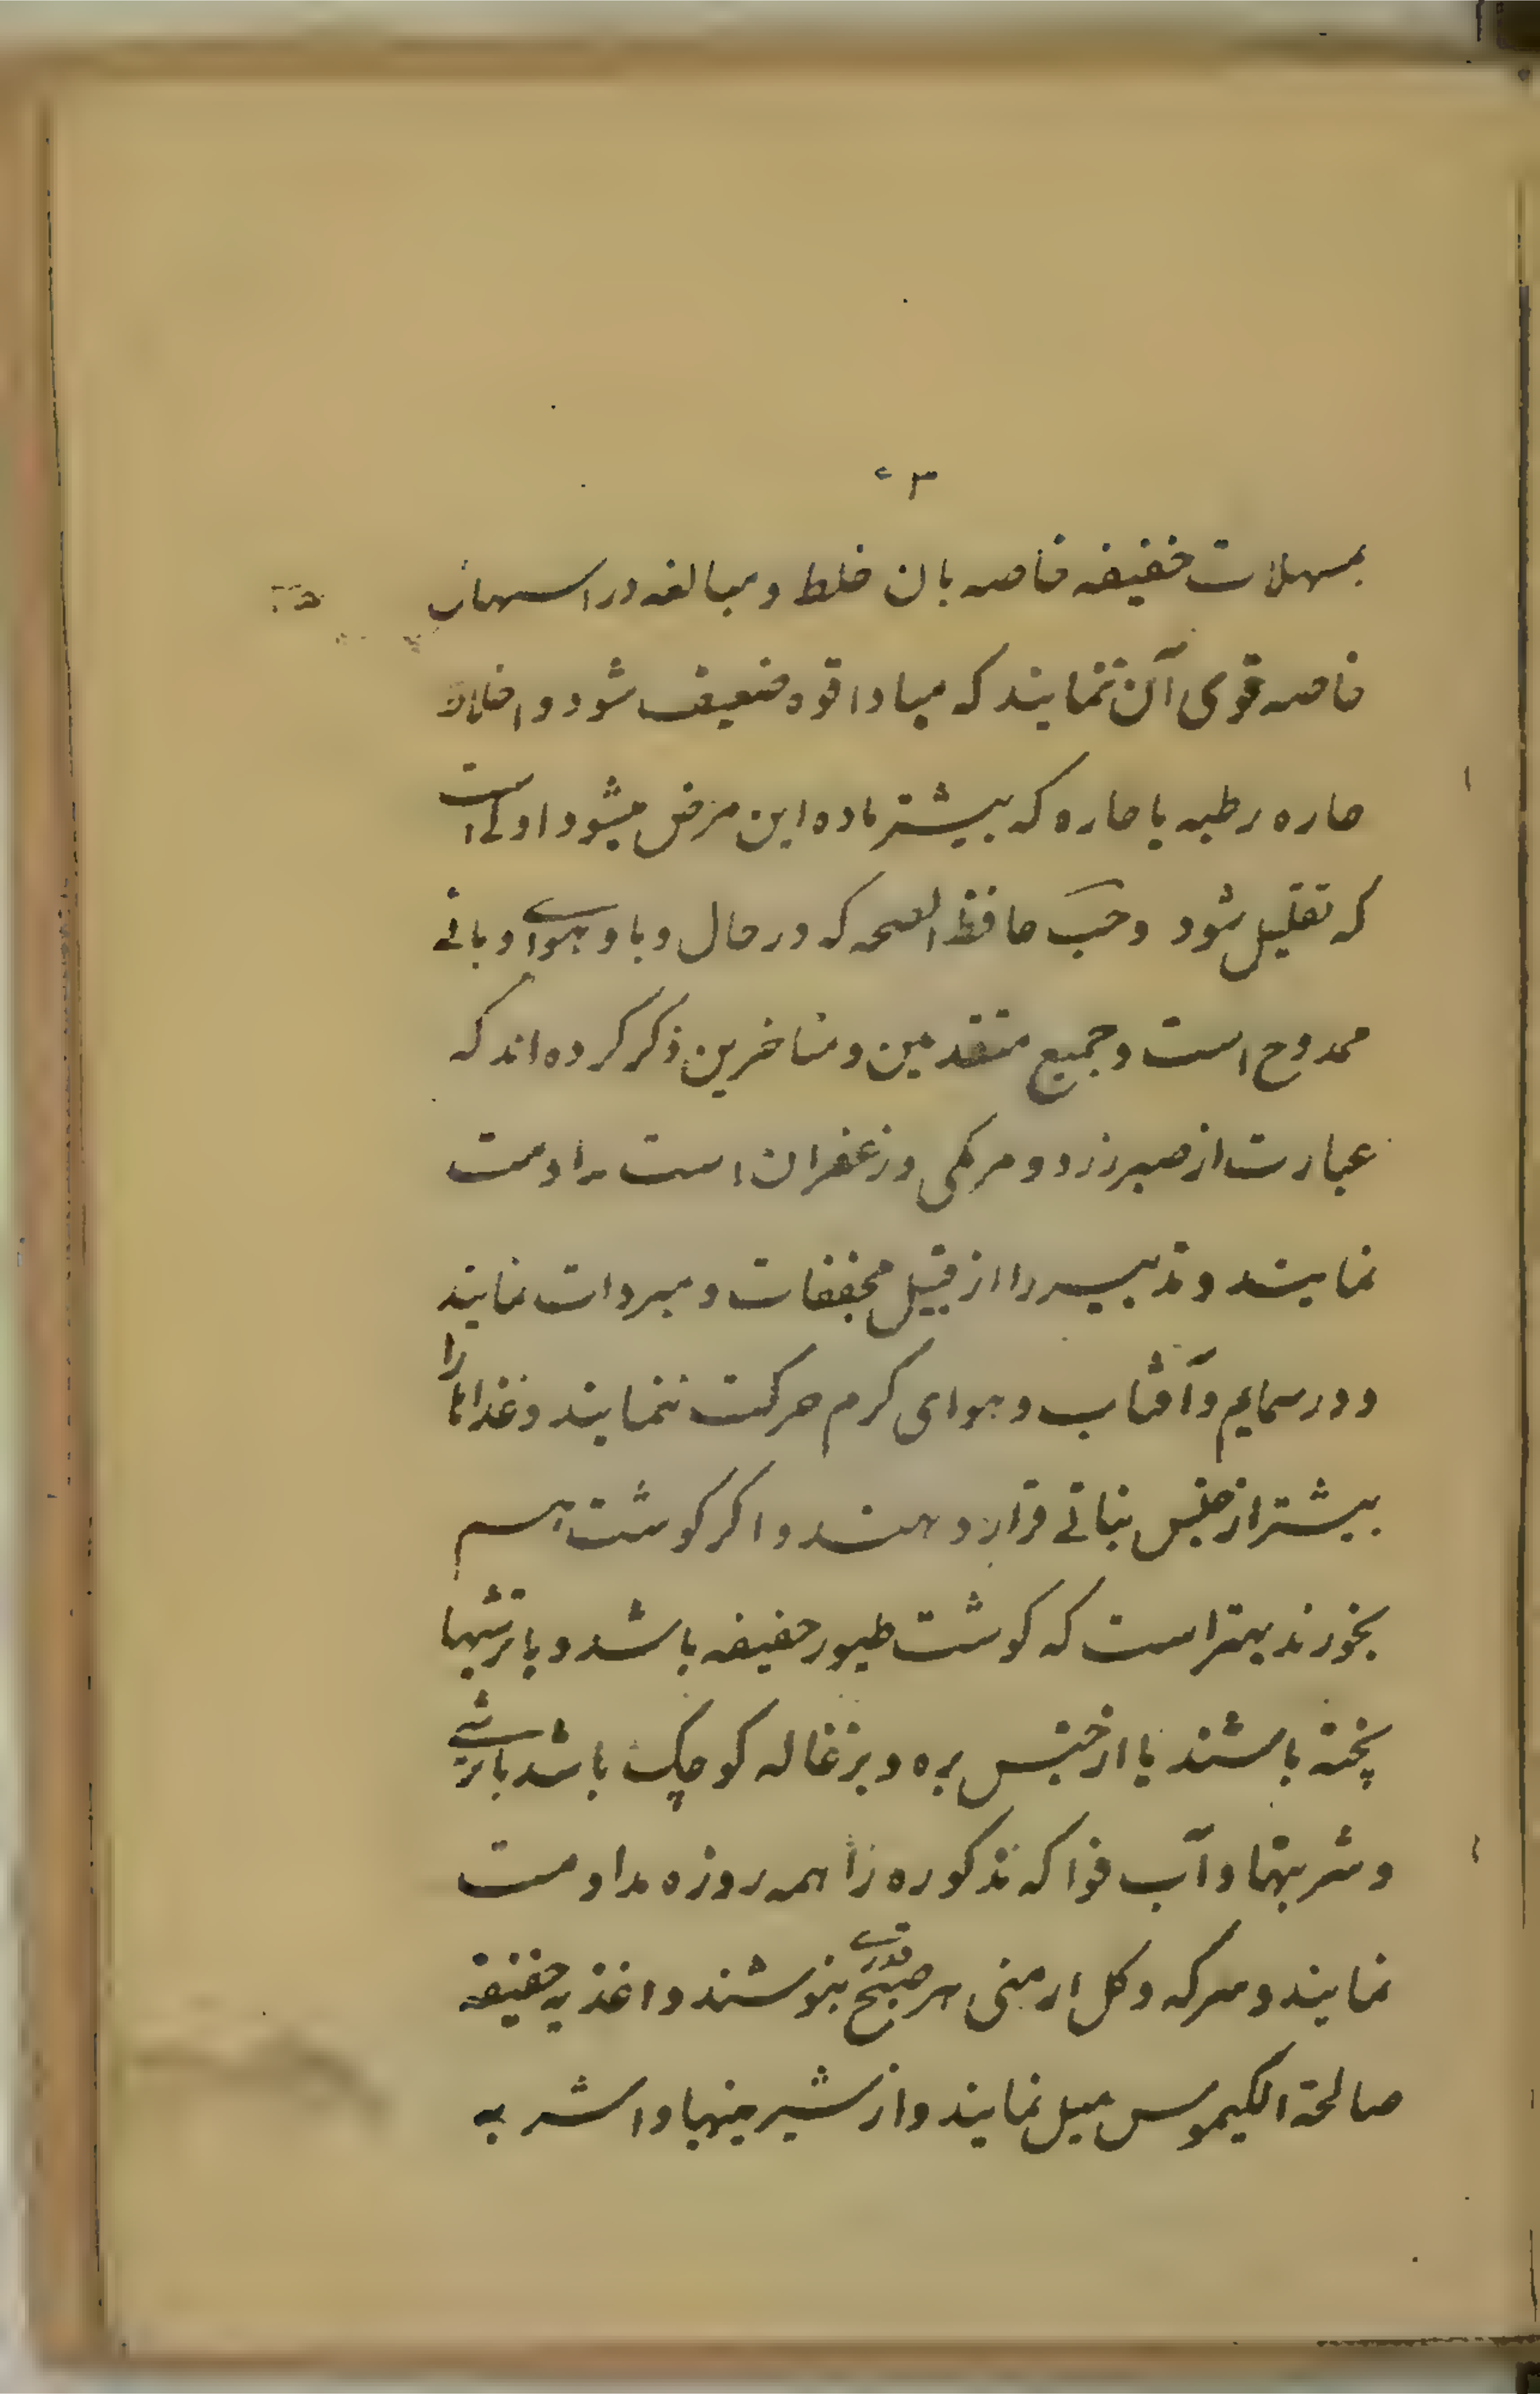 ۳۰
بمسهلات خفیفه خاصه بان خلط و مبالغه در اسهال
خاصه قوی آن ننمایند که مبادا قوه ضعیف شود و اخلاط
حاره رطبه یا حاره که بیشتر ماده این مرض میشود اولی است
که تقلیل شود و حب حافظ الصحه که در حال وبا و هوای وبائی
ممدوح است و جمیع متقدمین و متاخرین ذکر کرده اند که
عبارت از صبر زرد و مرمکی و زعفران است مداومت
نمایند و تدبیر را از قبیل مجففات و مبردات نمایند
و در سمایم و آفتاب و هوای کرم حرکت ننمایند و غذاها را
بیشتر از جنس نباتی قرار دهند و اکر کوشت هم
بخورند بهتر است که کوشت طیور خفیفه باشد و با ترشیها
پخته باشند یا از جنس بره و بزغاله کوچک باشد با ترشی
و شربتها و آب فواکه مذکوره را همه روزه مداومت
نمایند و سرکه و کل ارمنی هر صبح قدری بنوشند و اغذیه خفیفه
صالحة الکیموس میل نمایند و از شیرینیها و اشربه